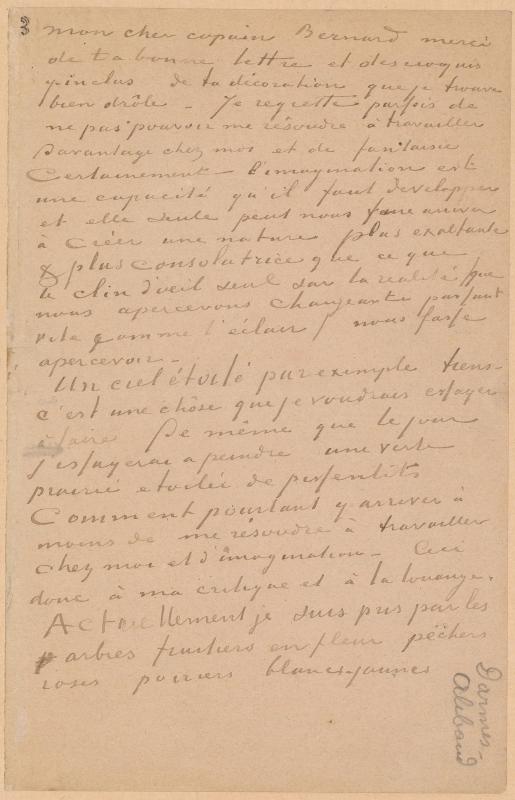 3
mon cher copain Bernard merci
de ta bonne lettre et des croquis
y inclus de ta décoration que je trouve
bien drôle – Je regrette parfois de
ne pas pouvoir me résoudre à travailler
davantage chez moi et de fantaisie
Certainement – l'imagination est
une capacité qu'il faut développer
et elle seule peut nous faire arriver
à créer une nature plus exaltante
& plus consolatrice que ce que
le clin d'œil seul sur la réalité que
nous apercevons changeante passant
vite comme l'éclair nous fasse
apercevoir –
Un ciel étoilé par exemple tiens –
c'est une chôse que je voudrais essayer
à faire De même que le jour
j'essayerai a peindre une verte
prairie etoilée de pissenlits
Comment pourtant y arriver à
moins de me résoudre à travailler
chez moi et d'imagination – Ceci
donc à ma critique et à ta louange.
Actuellement je suis pris par les
arbres fruitiers en fleur pêchers
roses poiriers blancs-jaunes
Darmes-